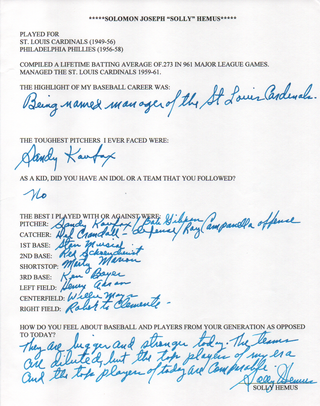 *****SOLOMON JOSEPH "SOLLY" HEMUS*****
PLAYED FOR:
ST. LOUIS CARDINALS (1949-56)
PHILADELPHIA PHILLIES (1956-58)
COMPILED A LIFETIME BATTING AVERAGE OF .273 IN 961 MAJOR LEAGUE GAMES.
MANAGED THE ST. LOUIS CARDINALS 1959-61.
THE HIGHLIGHT OF MY BASEBALL CAREER WAS:
Being named manager of the St Louis Cardinals.
THE TOUGHEST PITCHERS I EVER FACED WERE:
Sandy Koufax
AS A KID, DID YOU HAVE AN IDOL OR A TEAM THAT YOU FOLLOWED?
No
THE BEST I PLAYED WITH OR AGAINST WERE:
PITCHER: Sandy Koufax / Bob Gibson
CATCHER: Del Crandall - defense / Roy Campanella offense
1ST BASE: Stan Musial
2ND BASE: Red Schoendienst
SHORTSTOP: Marty Marion
3RD BASE: Ken Boyer
LEFT FIELD: Henry Aaron
CENTERFIELD: Willie Mays
RIGHT FIELD: Roberto Clemente -
HOW DO YOU FEEL ABOUT BASEBALL AND PLAYERS FROM YOUR GENERATION AS OPPOSED
TO TODAY?
They are bigger and stronger today. The teams
are diluted, but the top players of my era
and the top players of today are comparable
Solly Hemus
SOLLY HEMUS